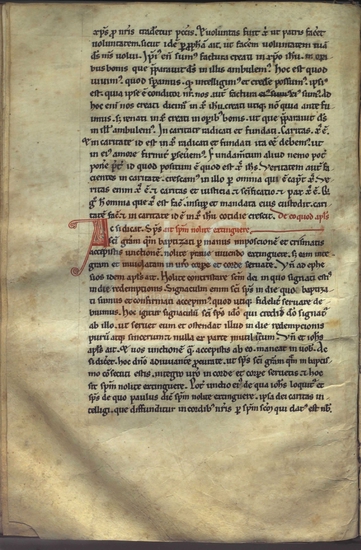 xp̄s p nr̄is tradetur pctīs. Et voluntas fuit & ut patris facet
voluntatem. sicut idē p ꝓphām ait. ut facem voluntatem tuā
dṡ ms̄ volui. Ipi' eī sum' factura creati in xp̄o ih̄u. in op
ribus bonis que p̄parauit dṡ in illis ambulem'. Hoc est quod
uiuim'. quod spiramus. q̄ intelligim' et crede possum'. ips'
est. quia ipse ē conditor nr̄. nos aut factura ei' sum'. ad
hoc eni nos creati
mus. in op̄ib' bonis. ut que p̄parauit dṡ
in ill' ambulem'. In caritate radicati et fundati. Caritas. dṡ ē.
in caritate id est in radicati et fundati ita eē debem'. ut
in ei' amore firmit' p̄seuem'. Fundamtum aliud nemo pot'
pone p̄ter id quod positum ē quod est xp̄s ih̄s. Veritatem aut' fa
cientes in caritate. crescam' in illo p omnia qui ē cap'
caritas et iusticia et scificatio
omnia que est et mandata eius custodire. cari
tatē in caritate id ē in ih̄u cotidie crescit. De eo quod apls
A si dicat. Sp̄s ait spm nolite extinguere.
sci gram qm baptizati p manus imposicionē et crismatis
accepistis unctionē. nolite peine uiuendo extinguere. sed eam inte
gram et inuiolatam in uro corpe et corde seruate. Vn̄ ad ephe
sios idem apls ait. Nolite contristare spm dei in quo signati estis
in die redemptionis. Signaculum enim sci sps in die quo baptiza
ti sumus et confirmati accepim'. quod utiq fideliter seruare de
bemus. Hoc igitur signaculū sci sps ido qui credidit dō signat'
ab illo. ut seruet eum et ostendat illud in die redempcionis
purū atq sincerum. et nulla ex parte mutilatum. Vn̄ et ioh̄s
apls ait. et uos unctionē quā accepistis ab eo. maneat in uob.
si diceret. hoc dn̄o adiuuante procurate. ut sps sci grām qm in baptis
mo consecuti estis. integrā in uro corde et corpe seruetis. hoc
est spm nolite extinguere. Pot' unctio ee de qua ioh̄s loquit' et
sps de quo paulus dicit spm nolite extinguere. ipsa dei caritas in
telligi. que diffunditur in cordib' nr̄is p spm scm qui dat' est nb̄.